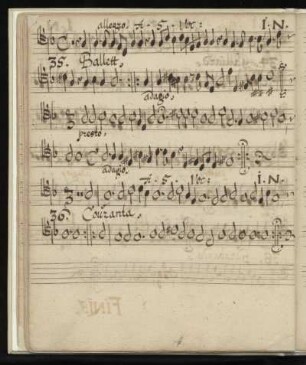 allegro. A. 5. Voc: I. N.
35. Ballett,
adagio,
presto,
adagio, A. 5. Voc: I. N.
36. Couranta,
FINIS